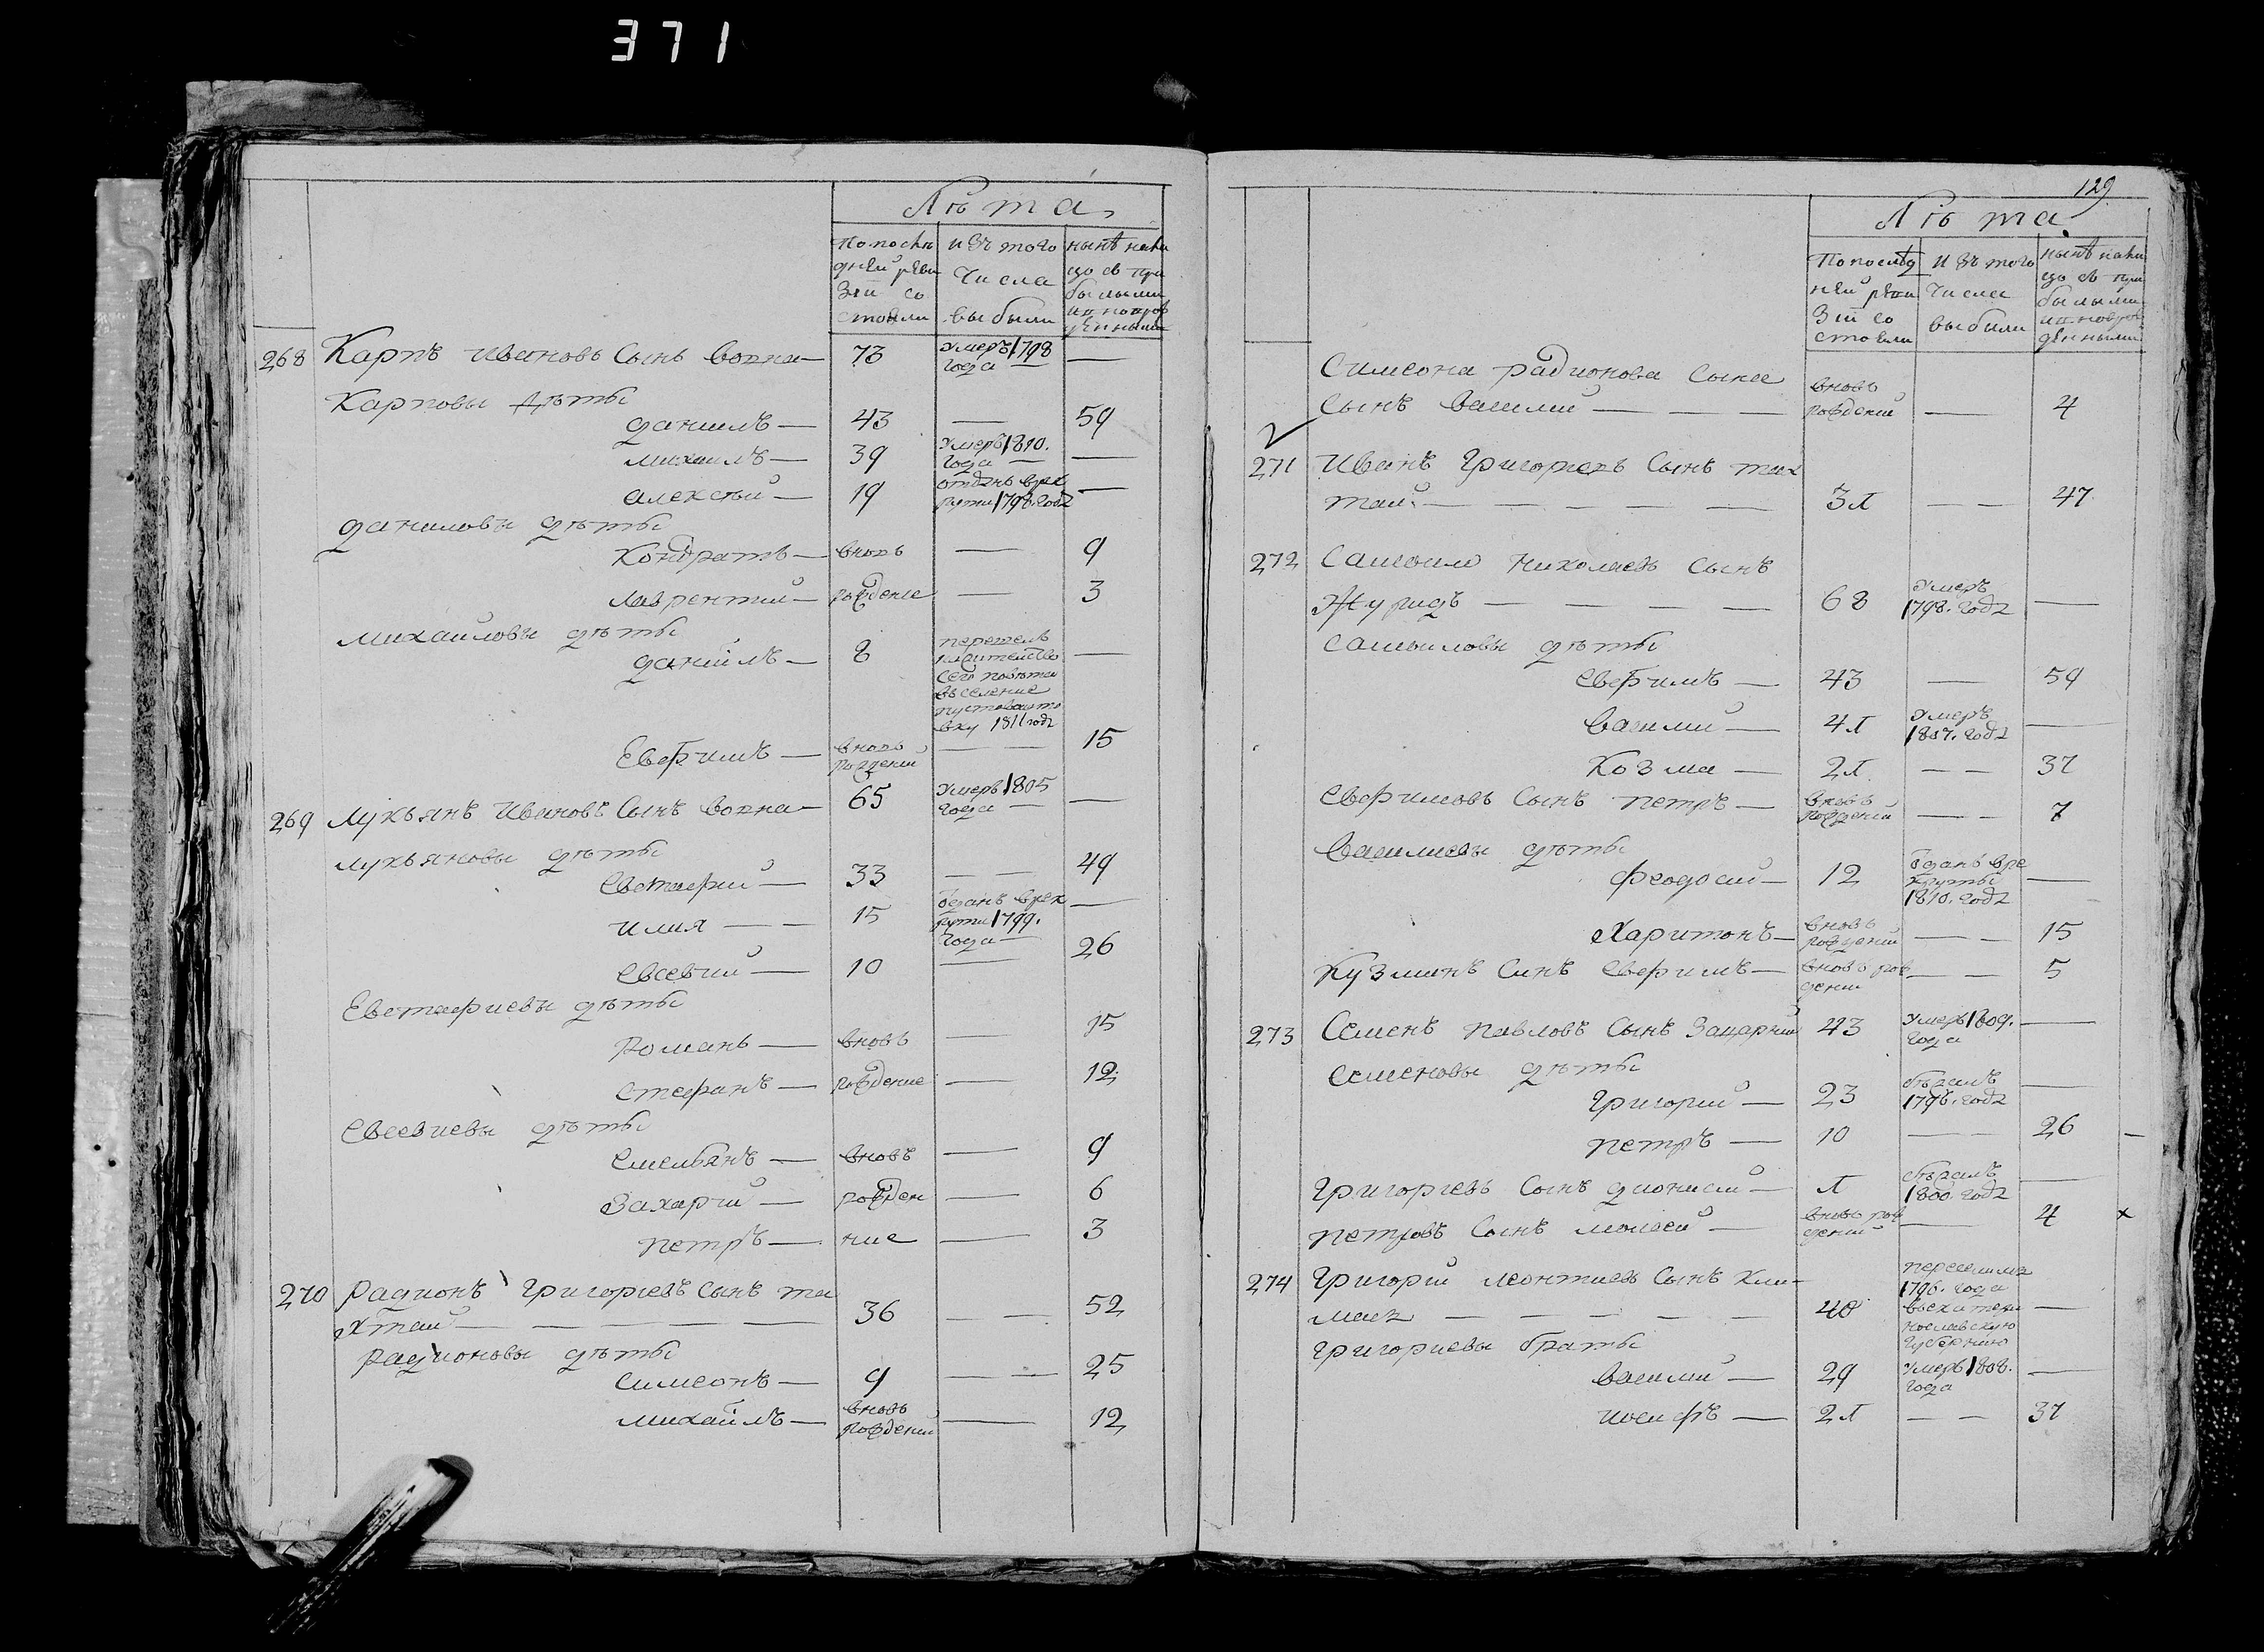 371
Лѣта
По послѣ
дней реви
зіи со
стояли
изъ того
числа
выбыли
нынѣ нали
цо съ при
былыми
и новорож
денными
268 Карпъ Ивановъ Сынъ Вовна — 73 Умеръ 1798 года —
Карповы дѣты
Даниилъ — 43 — 59
Михаилъ — 39 Умеръ 1810. года —
Алексѣй — 19 отданъ врек руты 1798. года —
Даниловы дѣты
Кондратъ — вновь — 9
Лаврентий — рождение — 3
Михайловы дѣты
Даниилъ — 8 перешелъ
сего повѣта
въ селение
вку 1811 года —
Евфимъ — вновь рождений — 15
269 Лукьянъ Ивановъ Сынъ Вовна — 65 Умеръ 1805 года —
Лукьяновы дѣты
Евстафий — 33 — 49
Илия — 15 Зданъ врек руты 1799. года —
Евсевий — 10 — 26
Евстафиевы дѣты
Романъ — вновь — 15
Стефанъ — рождение — 12
Евсевиевы дѣты
Емельянъ — вновь — 9
Захарий — рожден — 6
Петръ — ние — 3
270 Радионъ Григориевъ Сынъ та
хтай — 36 — 52
Радионовы дѣты
Симеонъ — 9 — 25
Михайлъ — вновь рождений — 12
129
Лѣта
По послѣд
ней реви
зіи со
стояли
изъ того
числа
выбили
нынѣ нали
цо съ при
былыми
и новорож
денными
Симеона радионова Сына
Сынъ Василий — вновь рождений — 4
271 Иванъ Григориевъ Сынъ тах
тай — 37 — 47
272 Самоило Николаевъ Сынъ
Журидъ — 68 Умеръ 1798. года —
Самоиловы дѣты
Евфимъ — 43 — 59
Василий — 47 Умеръ 1807. года —
Козма — 27 — 37
Евфимовъ Сынъ Петръ — вновь рождений — 7
Василиевы дѣты
Феодосий — 12 Зданъ вре круты 1810. года —
Харитонъ — вновь рождений — 15
Кузминъ Синъ Евфимъ — вновь рож дений — 5
273 Семенъ Павловъ Сынъ Зацарний 43 Умеръ 1809. года —
Семеновы дѣты
Григорий — 23 бѣжалъ 1798. года —
Петръ — 10 — 26
Григориевъ Сынъ Дионисий — 7 бѣжалъ 1800. года —
Петровъ Сынъ Моисей — вновь рож дений — 4 х
274 Григорий Леонтиевъ Сынъ Кли-
маз — 40 переселился
1796. года
въ екатери
нославскую
губернию —
Григориевы браты
Василий — 29 Умеръ 1808. года —
Иосифъ — 27 — 37